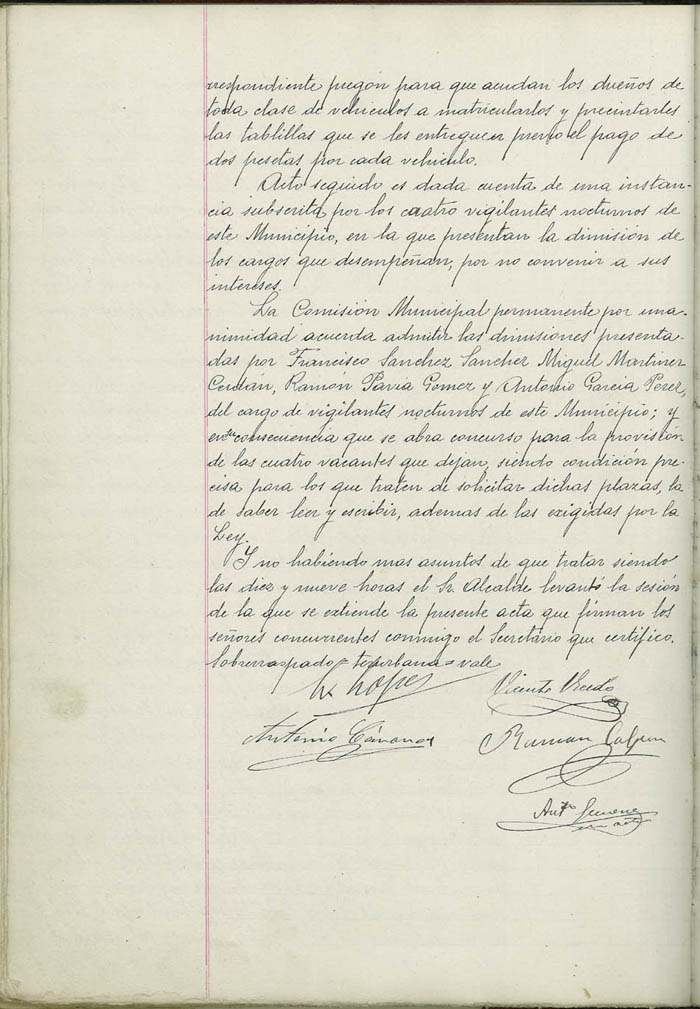 rrespondiente pregón para que acudan los dueños de
toda clase de vehiculos a matricularlos y precintarles
las tablillas que se les entreguen previo el pago de
dos pesetas por cada vehiculo.
Acto seguido es dada cuenta de una instan-
cia subscrita por los cuatro vigilantes nocturnos de
este Municipio, en la que presentan la dimisión de
los cargos que desempeñan, por no convenir a sus
intereses.
La Comisión Municipal permanente por una-
nimidad acuerda admitir las dimisiones presenta-
das por Francisco Sanchez Sanchez Miguel Martinez
Cerdán, Ramón Pavia Gomez y Antonio Garcia Perez,
del cargo de vigilantes nocturnos de este Municipio; y
en su consecuencia que se abra concurso para la provisión
de las cuatro vacantes que dejan, siendo condición pre-
cisa para los que traten de solicitar dichas plazas, la
de saber leer y escribir, ademas de las exigidas por la
Ley.
Y no habiendo mas asuntos de que tratar siendo
las diez y nueve horas el Sr. Alcalde levantó la sesión
de la que se extiende la presente acta que firman los
señores concurrentes conmigo el Secretario que certifico.
Sobrerraspado = = vale
Lopez Vicente
Antonio Cánovas Ramon
Antº